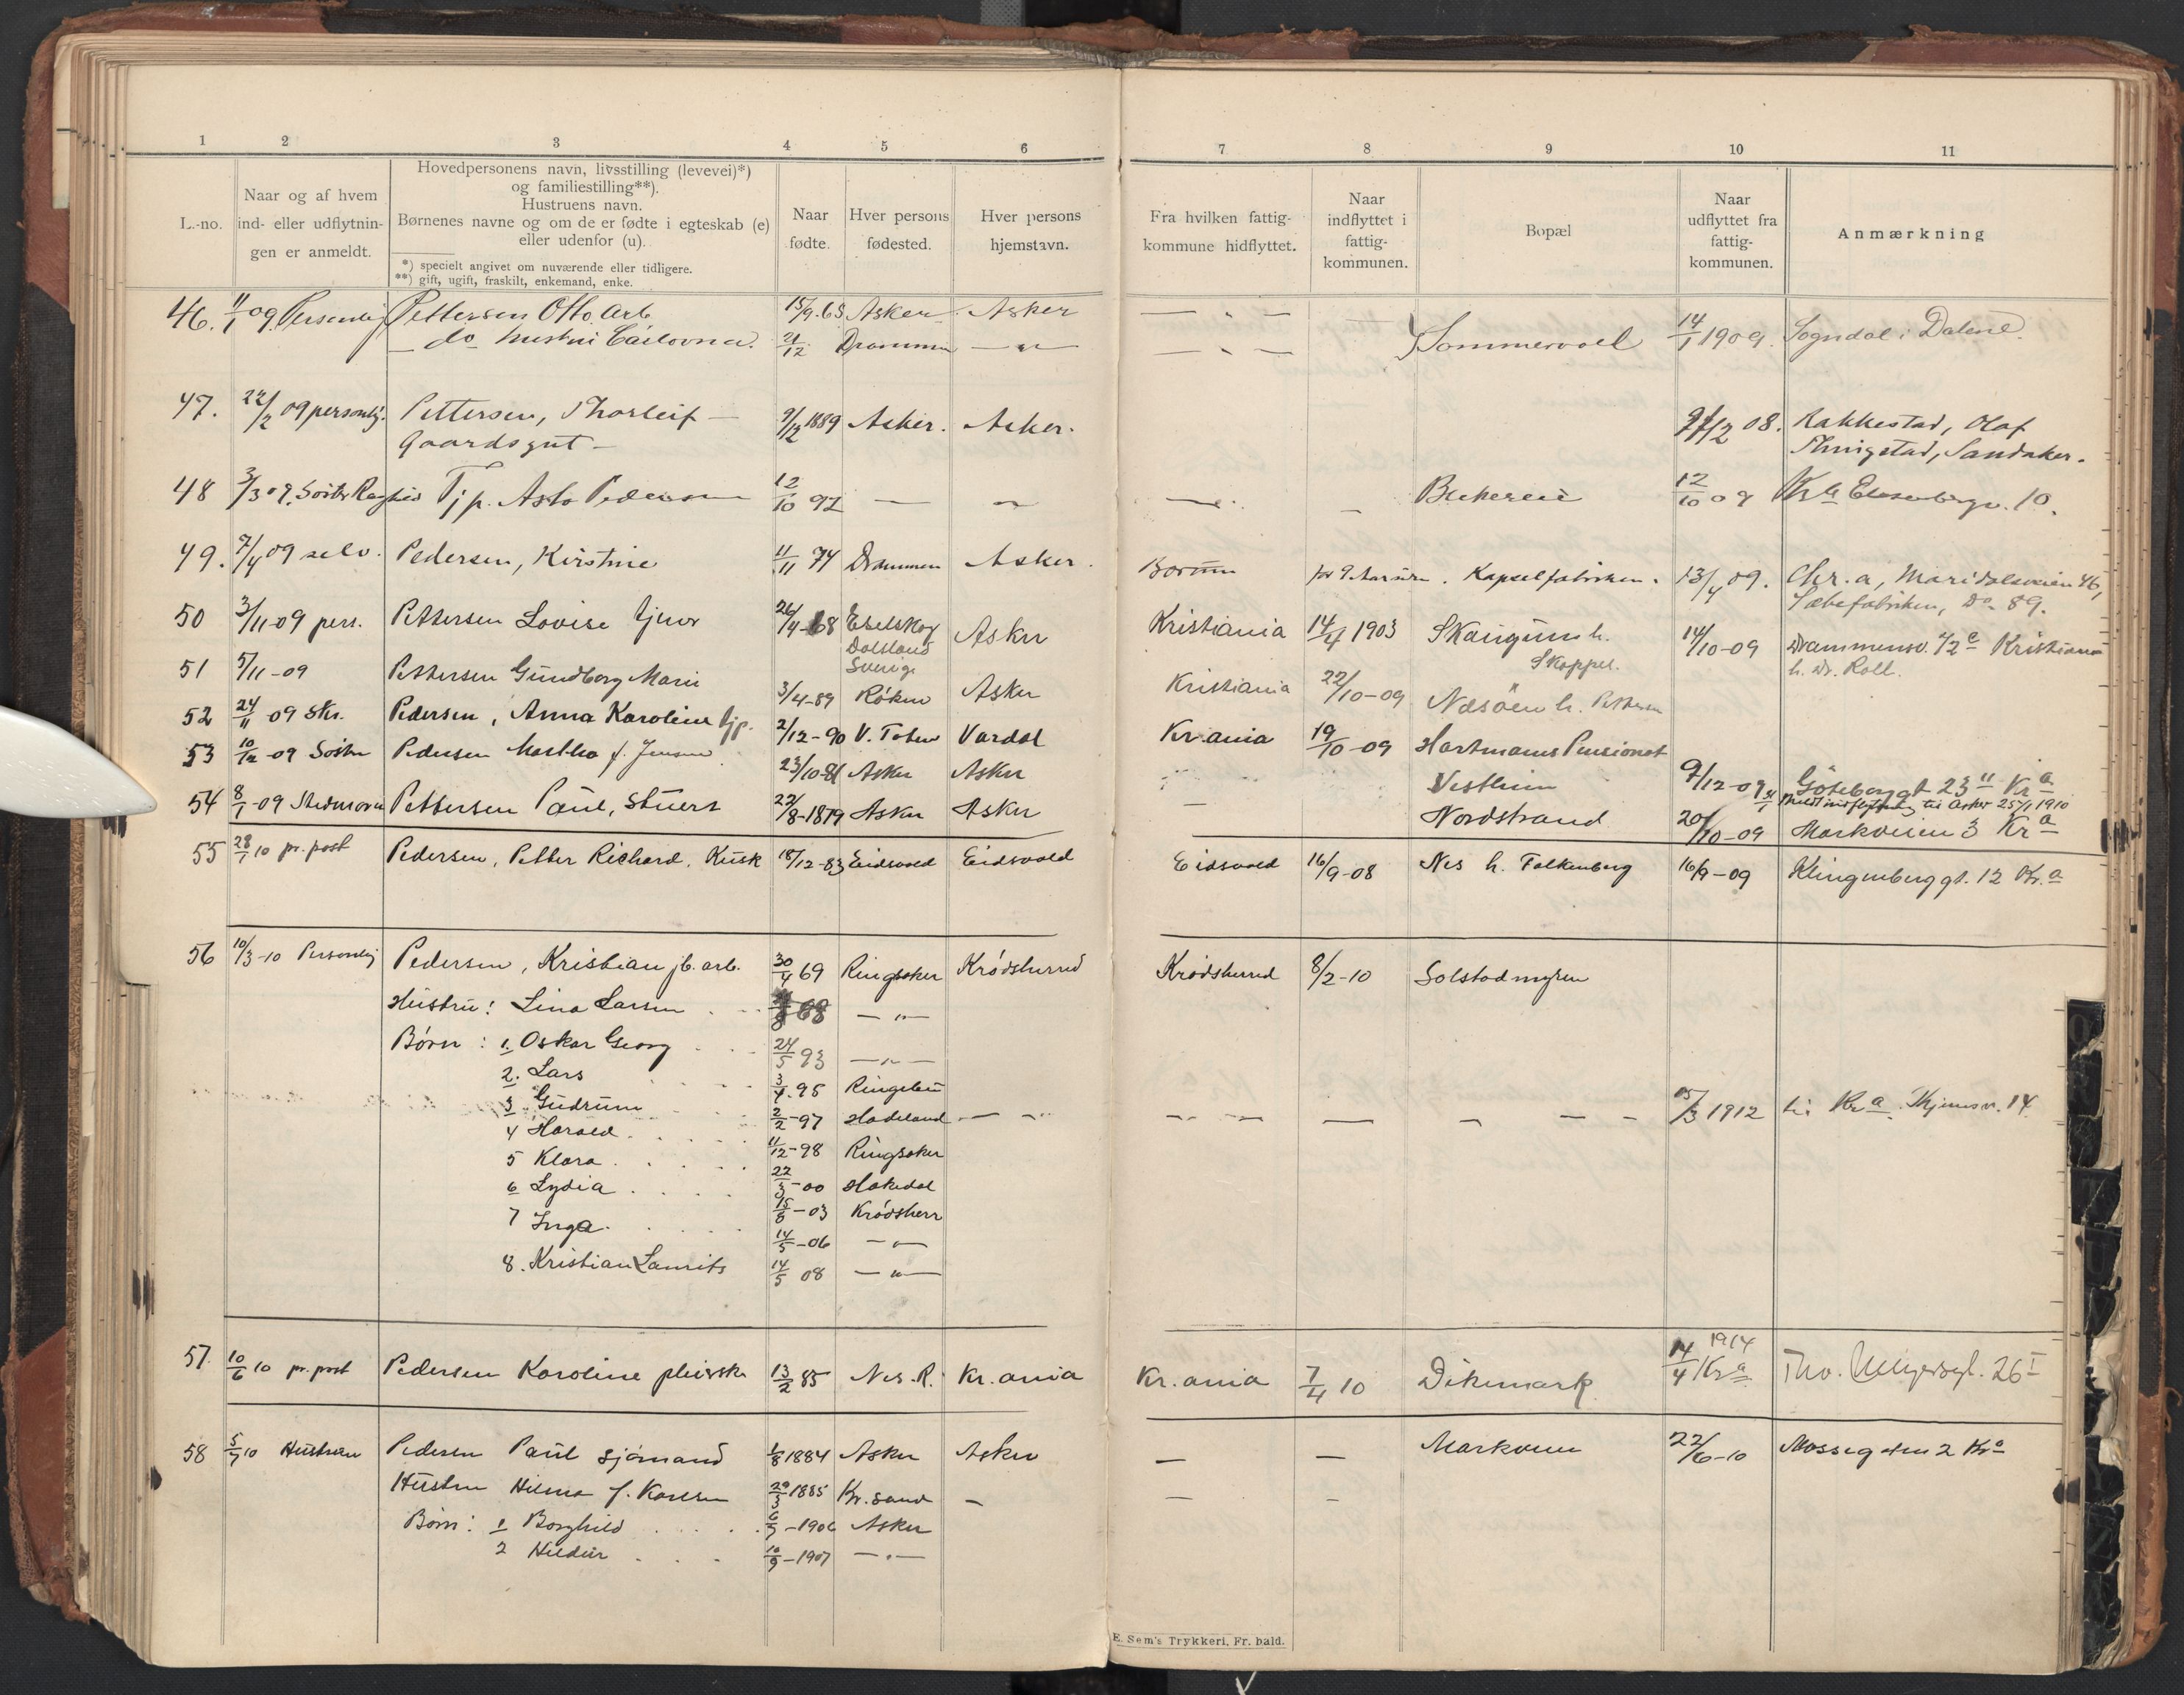 1 2 3 4 5 6 7 8 9 10 11
L.-no.
Naar og af hvem
ind- eller udflytnin-
gen er anmeldt.
Hovedpersonens navn, livsstilling (levevei)*)
og familiestilling**).
Hustruens navn.
Børnenes navne og om de er fødte i egteskab (e)
eller udenfor (u).
*) specielt angivet om nuværende eller tidligere.
**) gift, ugift, fraskilt, enkemand, enke.
Naar
fødte.
Hver persons
fødested.
Hver persons
hjemstavn.
Fra hvilken fattig-
kommune hidflyttet.
Naar
indflyttet i
fattig-
kommunen.
Bopæl
Naar
udflyttet fra
fattig-
kommunen.
Anmærkning
46. 11/1 09. Personlig Pettersen Otto Arb. 15/9. 63 Asker Asker — " —
do hustru 21/12 Drammen — " — — " — Sommervold 14/1 1909. Sogndal i Dalene.
47. 22/2 09 personlig. Pettersen, Thorleif — 9/12 1889 Asker. Asker. /2 08. Rakkestad, Olaf
Gaardsgut — Sandaker.
48 3/3 09. Søster Ragnhild Tjp. Asta Pedersen 12/10 92 — " — 12/10 09 Kra 10.
49. 7/4 09 selv. Pedersen, Kirstine 11/11 74 Drammen Asker. Bærum for 9 Aar siden. Kapselfabriken. 13/4 09. Chr.a, Maridalsveien 46,
Sæbefabriken, Do 89.
50 3/11-09 pers. Pettersen Lovise tjener 26/4-68 Edelskog Asker Kristiania 14/4 1903 Skaugum h. 14/10-09 Drammensv. 72 c Kristiania
Dalsland
Sverige
Skoppel.
h. Dr. Roll.
51 5/11-09 Pettersen Gundborg Marie 3/4-89 Røken Asker Kristiania 22/10-09 Næsøen h. Pettersen
52 24/11 09 Skr. Pedersen, Anna Karoline tjp. 2/12-90 V. Toten Vardal Kr.ania 19/10-09 Hartmanns Pensionat
53 10/12-09 Søster Pedersen Martha f. Jensen 23/10-81 Asker Asker Vestheim 9/12-09 Göteborggt 23 II Kr a
til Asker 25/1 1910
54 8/1-09 Stedmoren Pettersen Paul, Stuert 22/8-1879 Asker Asker — Nordstrand 20/10-09 Markveien 3 Kr a
55 28/1 10 pr. post Pedersen, Petter Richard, Kusk 18/12-83 Eidsvold Eidsvold Eidsvold 16/9-08 Nes h. Falkenberg 16/9-09 Klingenberggt. 12 Kr.a
56 10/3-10 Personlig Pedersen, Kristian jb. arb. 30/4 69 Ringsaker Krødsherred Krødsherred 8/2-10 Solstadmyren
Hustru: Lina Larsen 68 — " —
Børn: 1. Oskar Georg 24/5 93 — " —
2. Lars 3/4-95 Ringebu
3 Gudrun 2/2-97 Hadeland — " — — — — — — 15/3 1912 til Kr a 14
4 Harald 11/12-98 Ringsaker
5 Klara 22/3-00 Hakedal
6 Lydia 15/8-03 Krødsherr
7 Inga 14/5-06 — " —
8. Kristian Laurits 14/5 08 — " —
57 10/6 10 pr. post Pedersen Karoline pleierske 13/2 85 Nes. R. Kr.ania Kr.ania 7/4 10 Dikemark 14/4 1914 Kr a Tho. Meyersgt. 26 I
58 5/7 10 Hustruen Pedersen Paul Sjømand 1/8 1884 Asker Asker — — Markveien 22/6-10 Mossegaten 2 Kr a
Hustru Hilma f. Karlsen 20/3 1885 Kr.sand — — —
Børn: 1 Borghild 6/7-1906 Asker
2 Hildur 10/9-1907 — " —
E. Sem's Trykkeri, Fr. hald.